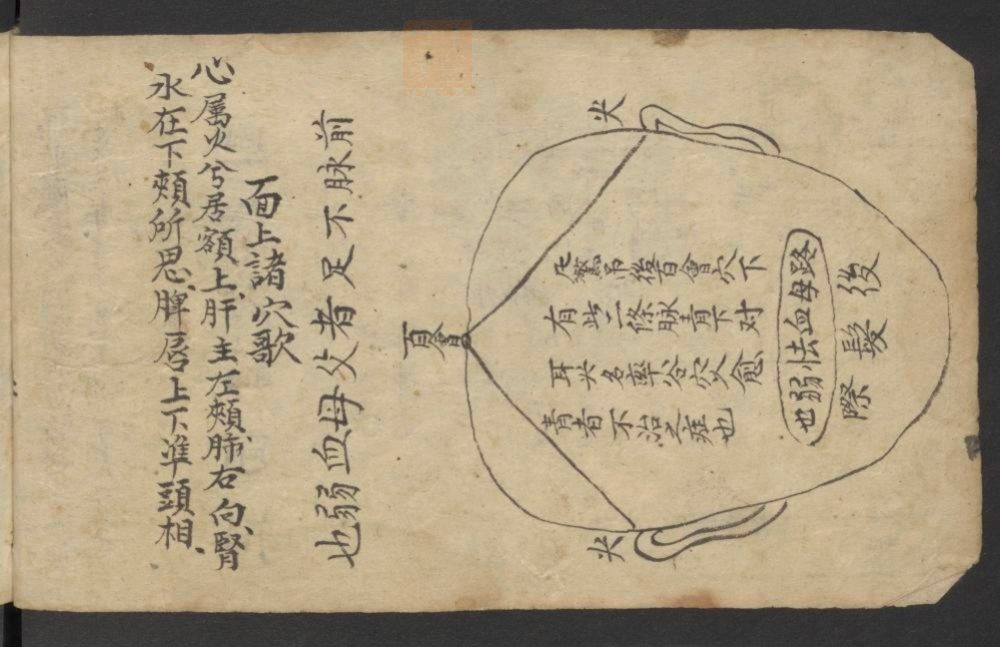 後髮際
路母血怯弱也
凡驚吊後百會穴下
有此二條脉青下对
耳尖名率谷穴愈
青者不治之症也
尖
尖
百會
前脉不足者父母血弱也
面上諸穴歌
心属火兮居額上肝主左頰肺右向腎
水在下頰所思脾唇上下準頭相